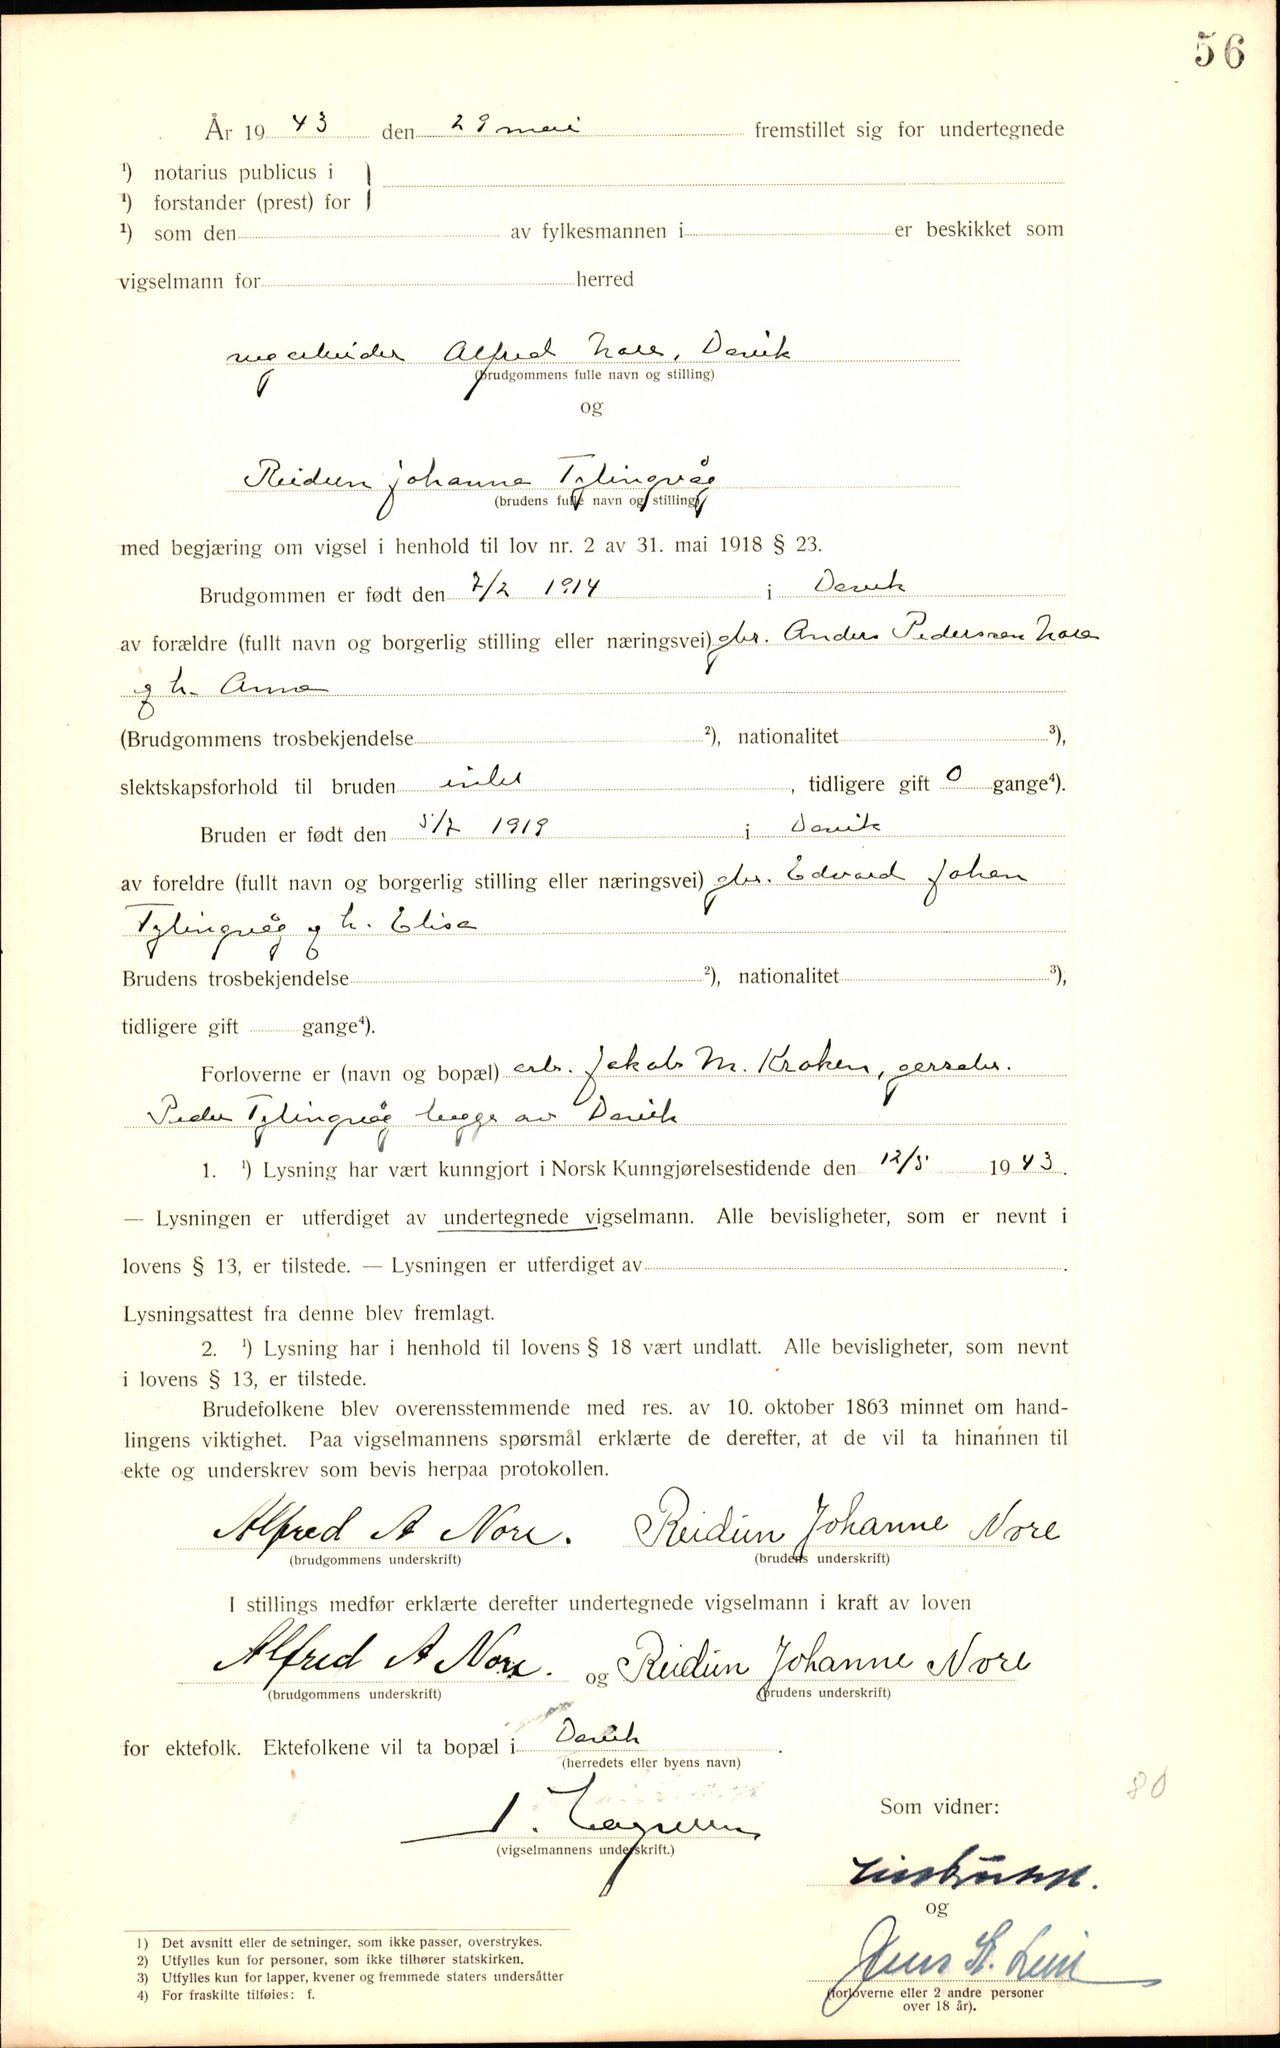 56
År 19 43 den 29 mai fremstillet sig for undertegnede
¹) notarius publicus i
¹) forstander (prest) for
¹) som den av fylkesmannen i er beskikket som
vigselmann for herred
Alfred Nore, Davik
(brudgommens fulle navn og stilling)
og
Reidun Johanne Tytingvåg
(brudens fulle navn og stilling)
med begjæring om vigsel i henhold til lov nr. 2 av 31. mai 1918 § 23.
Brudgommen er født den 7/2 1914 i Davik
av forældre (fullt navn og borgerlig stilling eller næringsvei) gbr. Anders Pedersen Nore
og h. Anna
(Brudgommens trosbekjendelse ²), nationalitet ³),
slektskapsforhold til bruden intet , tidligere gift 0 gange⁴).
Bruden er født den 5/7 1919 i Davik
av foreldre (fullt navn og borgerlig stilling eller næringsvei) gbr. Edvard Johan
Tytingvåg og h. Elisa
Brudens trosbekjendelse ²), nationalitet ³),
tidligere gift gange⁴).
Forloverne er (navn og bopæl) arb. Jakob M. Kroken,
Peder Tytingvåg begge av Davik
1. ¹) Lysning har vært kunngjort i Norsk Kunngjørelsestidende den 12/5 1943.
— Lysningen er utferdiget av undertegnede vigselmann. Alle bevisligheter, som er nevnt i
lovens § 13, er tilstede. — Lysningen er utferdiget av .
Lysningsattest fra denne blev fremlagt.
2. ¹) Lysning har i henhold til lovens § 18 vært undlatt. Alle bevisligheter, som nevnt
i lovens § 13, er tilstede.
Brudefolkene blev overensstemmende med res. av 10. oktober 1863 minnet om hand-
lingens viktighet. Paa vigselmannens spørsmål erklærte de derefter, at de vil ta hinannen til
ekte og underskrev som bevis herpaa protokollen.
Alfred A Nore. Reidun Johanne Nore
(brudgommens underskrift) (brudens underskrift)
I stillings medfør erklærte derefter undertegnede vigselmann i kraft av loven
Alfred A Nore. og Reidun Johanne Nore
(brudgommens underskrift) (brudens underskrift)
for ektefolk. Ektefolkene vil ta bopæl i Davik .
(herredets eller byens navn)
80
Som vidner:
(vigselmannens underskrift.)
og
Jens
(forloverne eller 2 andre personer
over 18 år).
1) Det avsnitt eller de setninger, som ikke passer, overstrykes.
2) Utfylles kun for personer, som ikke tilhører statskirken.
3) Utfylles kun for lapper, kvener og fremmede staters undersåtter
4) For fraskilte tilføies: f.